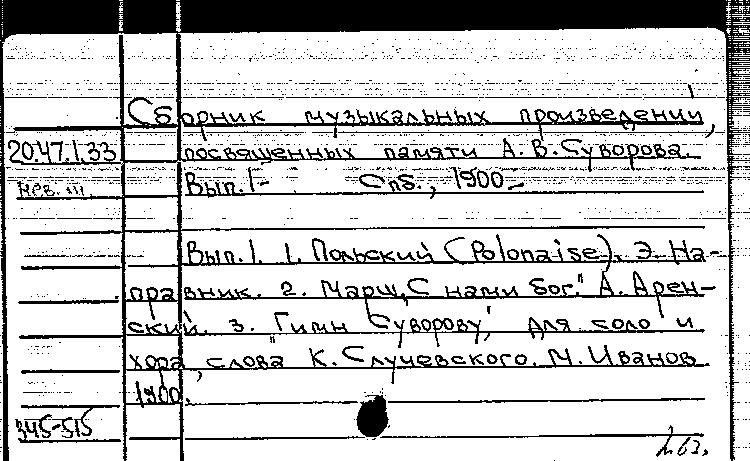 Сборник музыкальных произведений,
20.47.1.33 посвященных памяти А. В. Суворова.
Вып. 1- Спб., 1900-
Вып. 1. 1. Польский (Polonaise). Э. На-
правник. 2. Марш „С нами бог." А. Арен-
ский. 3. "Гимн Суворову", для соло и
хора, слова К. Случевского. М. Иванов
1900.
345-515